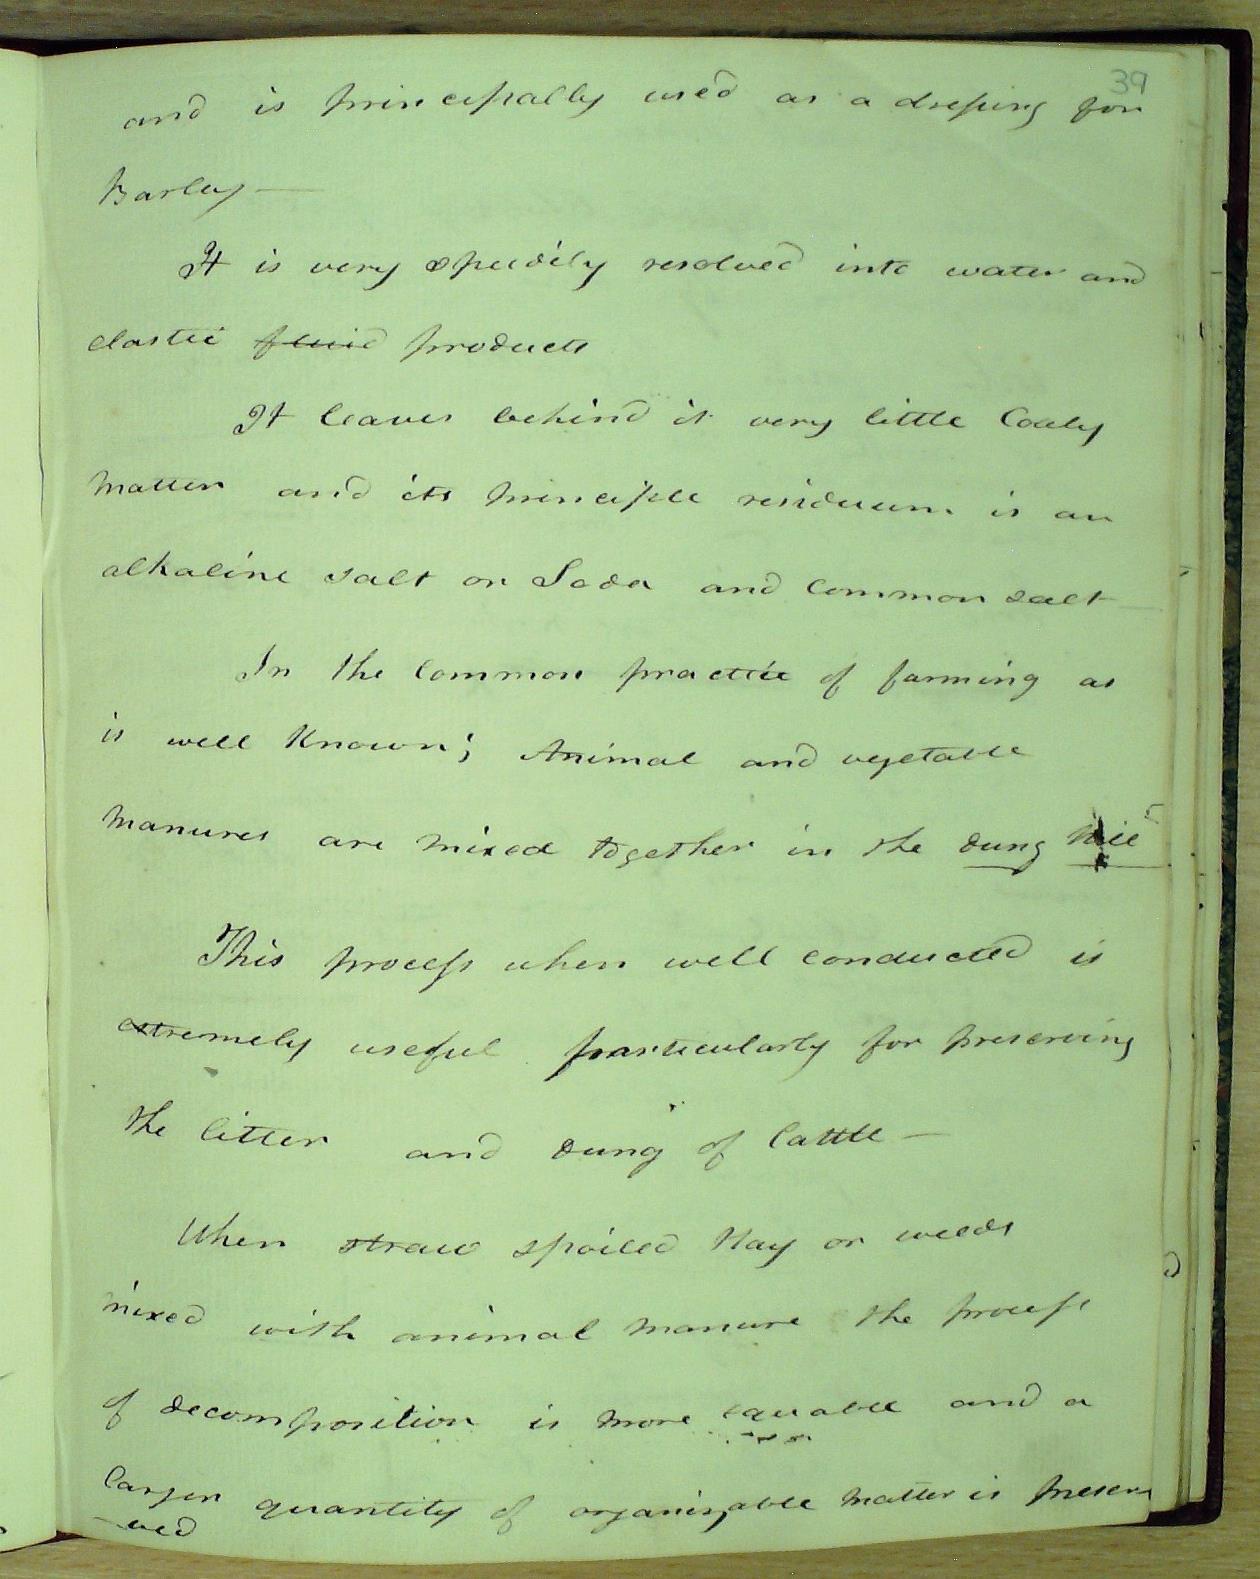 39
and is principally used as a dressing for
Barley —
It is very speedily resolved into water and
elastic fluid products
It leaves behind it very little Coaly
matter and its principle residuum is an
alkaline salt or Soda and Common salt
In the Common practice of farming as
is well Known; Animal and vegetable
manures are mixed together in the dung hill
This process when well conducted is
extremely useful particularly for preserving
the litter and dung of Cattle —
When straw spoiled Hay or weeds
mixed with animal manure the process
of decomposition is more equable and a
larger quantity of organizable matter is preser
-ved